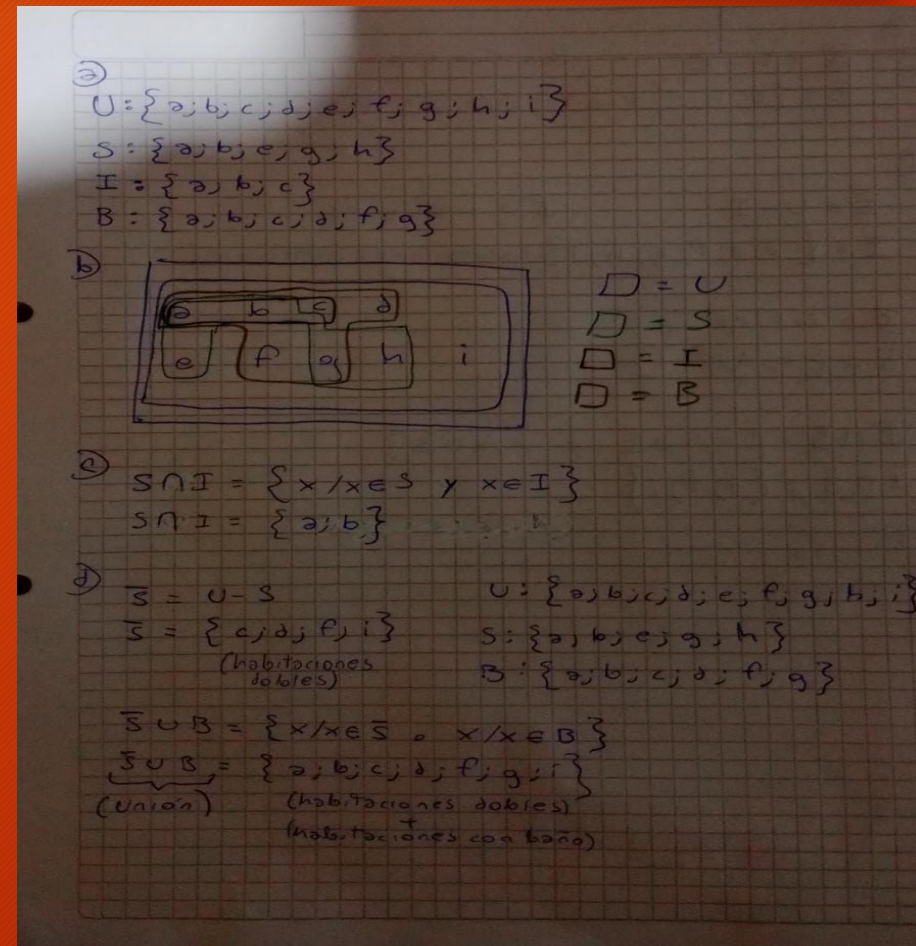 a
U: {a; b; c; d; e; f; g; h; i}
S: {a; b; e; g; h}
I: {a; b; c}
B: {a; b; c; d; f; g}
b
a b c d
e f g h i
□ = U
□ = S
□ = I
□ = B
c
S∩I = {x/x∈S y x∈I}
S∩I = {a; b}
d
S̅ = U-S
S̅ = {c; d; f; i}
(habitaciones
dobles)
U: {a; b; c; d; e; f; g; h; i}
S: {a; b; e; g; h}
B: {a; b; c; d; f; g}
S̅∪B = {x/x∈S̅ o x/x∈B}
S̅∪B = {a; b; c; d; f; g; i}
(unión)
(habitaciones dobles)
+
(habitaciones con baño)